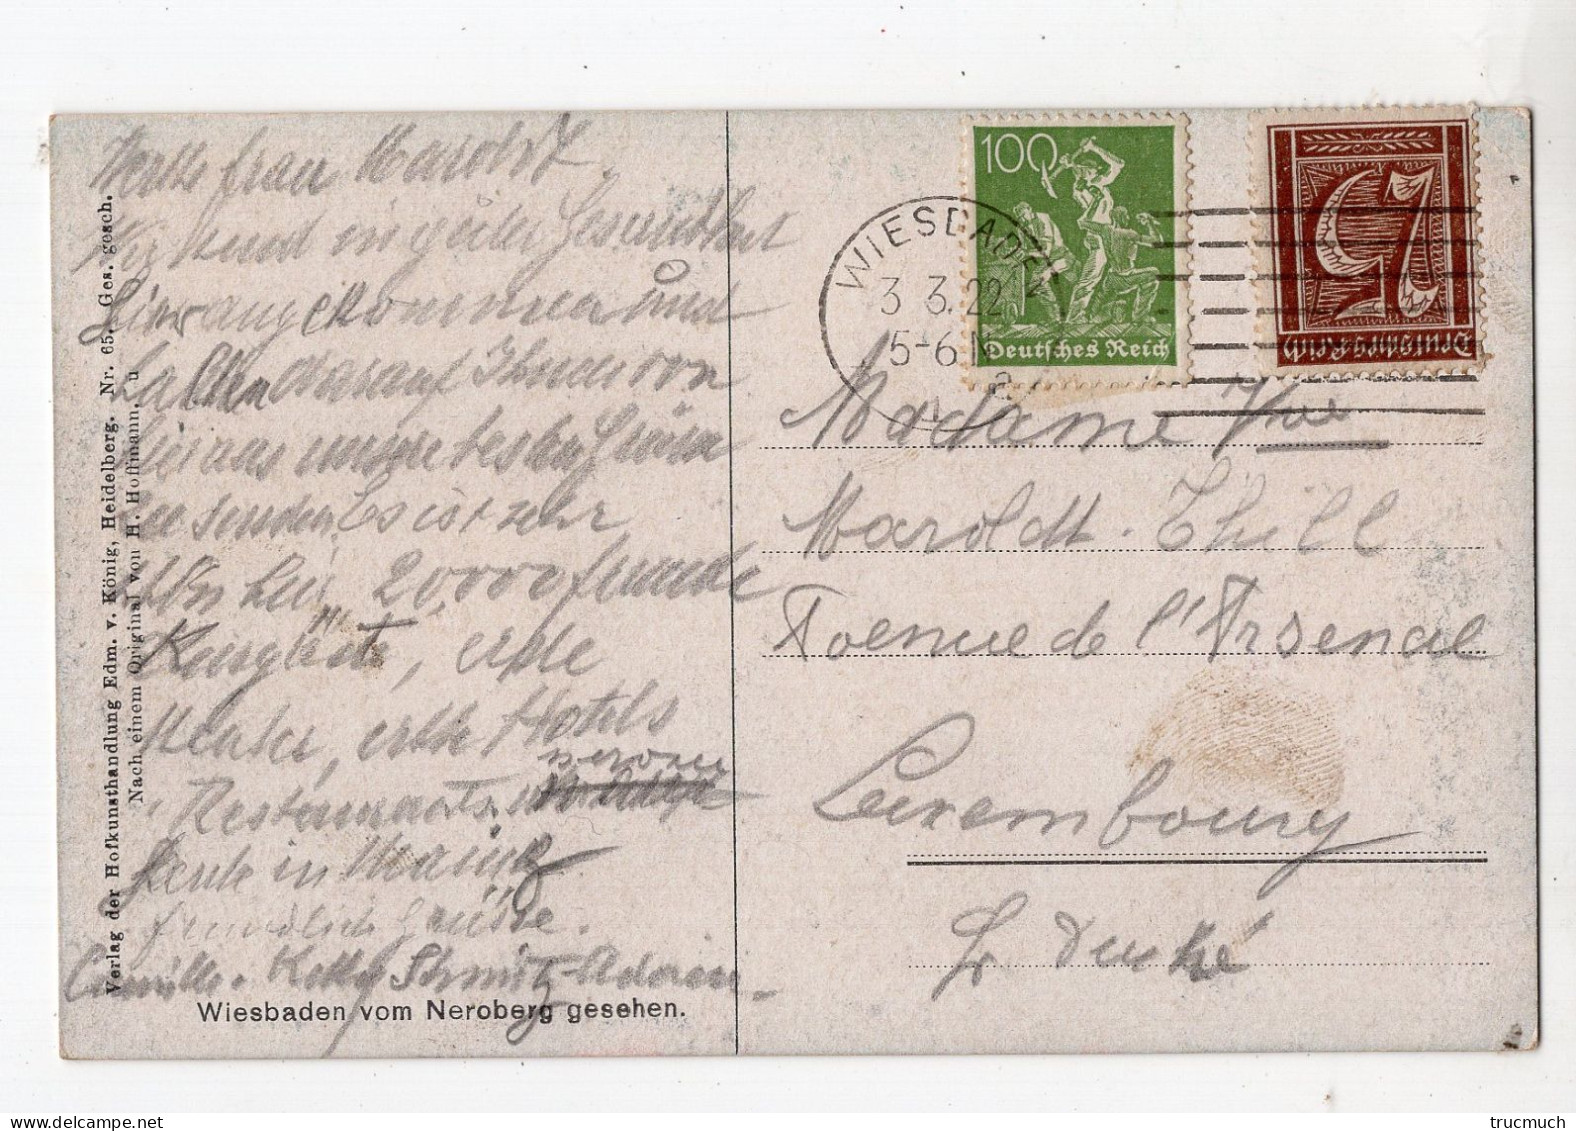 Werte frau Maroldt
Wir sind in guter Gesundheit
hier angekommen und
hier aus unsere besten Grüsse
zu senden. Es ist sehr
20,000 fremde
Kurgäste, erste
erste Hotels
Restaurants
heute in Mainz
freundliche Grüsse.
Camille. Ketty Schmitz-Adorien
Wiesbaden vom Neroberg gesehen.
Verlag der Hofkunsthandlung Edm. v. König, Heidelberg. Nr. 65. Ges. gesch.
Nach einem Original von H. Hoffmann.
100
Deutsches Reich
75
Deutsches Reich
WIESBADEN
3 3.22
5-6 N
a
Madame Vve
Maroldt-Thill
Avenue de l'Arsenal
Luxembourg
Gr Duché
trucmuch